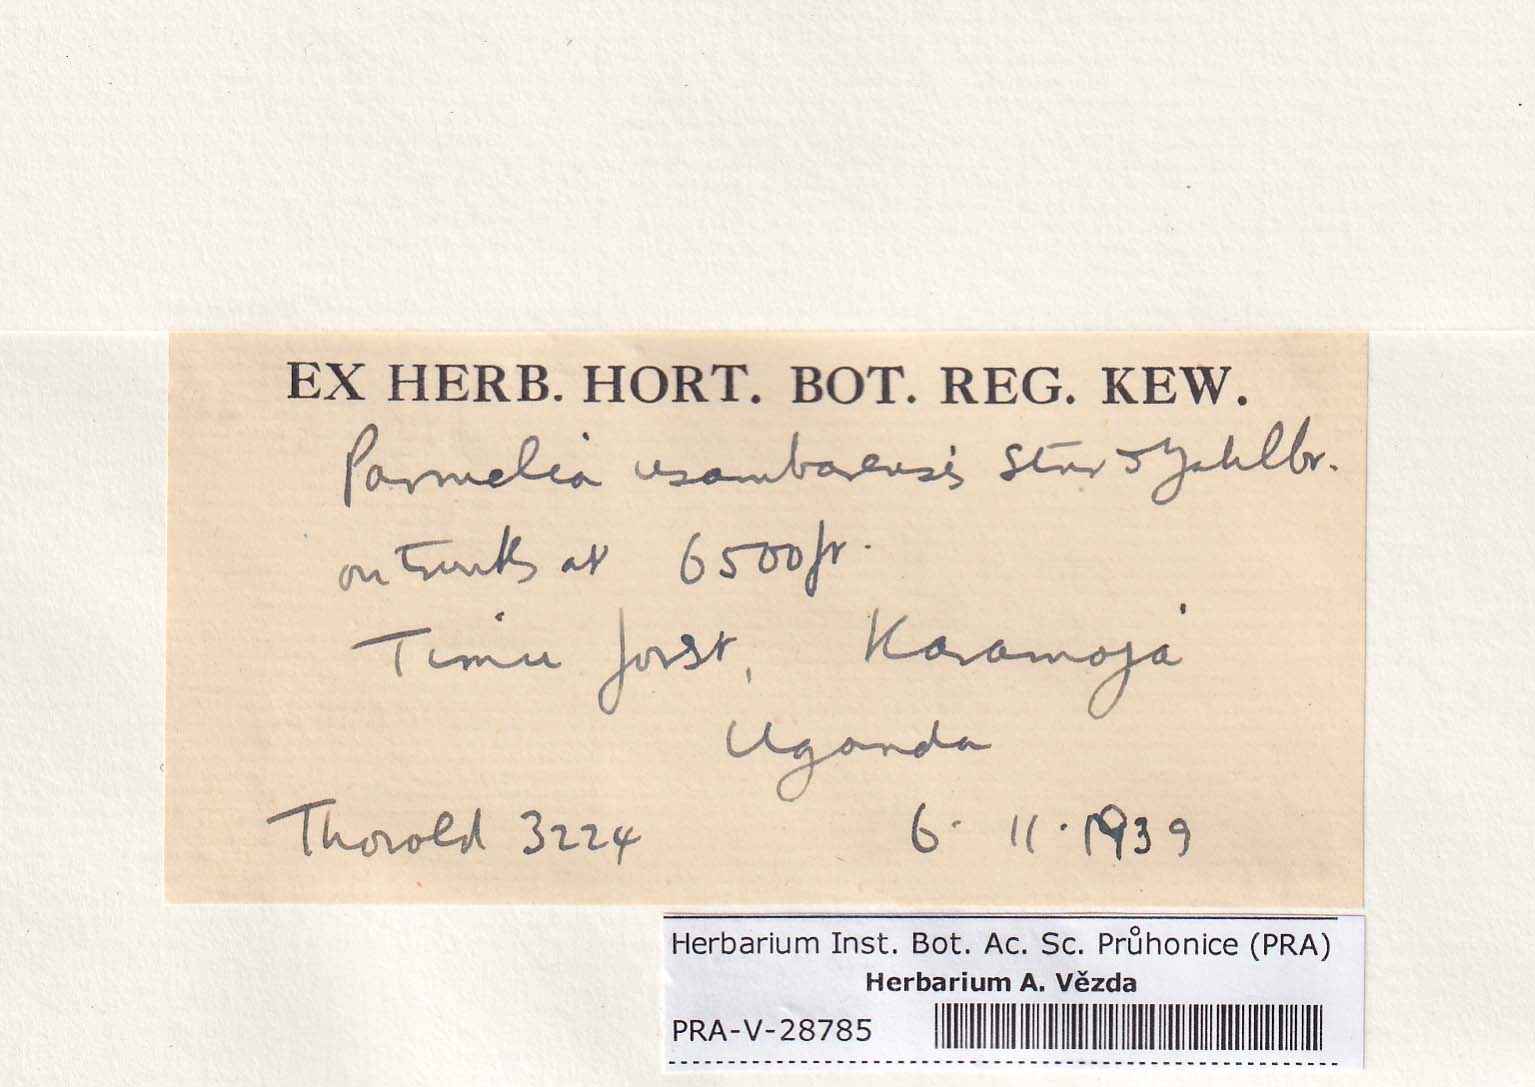 EX HERB. HORT. BOT. REG. KEW.
Parmelia usambarensis Stnr & Zahlbr.
on trunks at 6500 ft.
Timu forst, Karamoja
Uganda
Thorold 3224 6. 11. 1939
Herbarium Inst. Bot. Ac. Sc. Průhonice (PRA)
Herbarium A. Vězda
PRA-V-28785